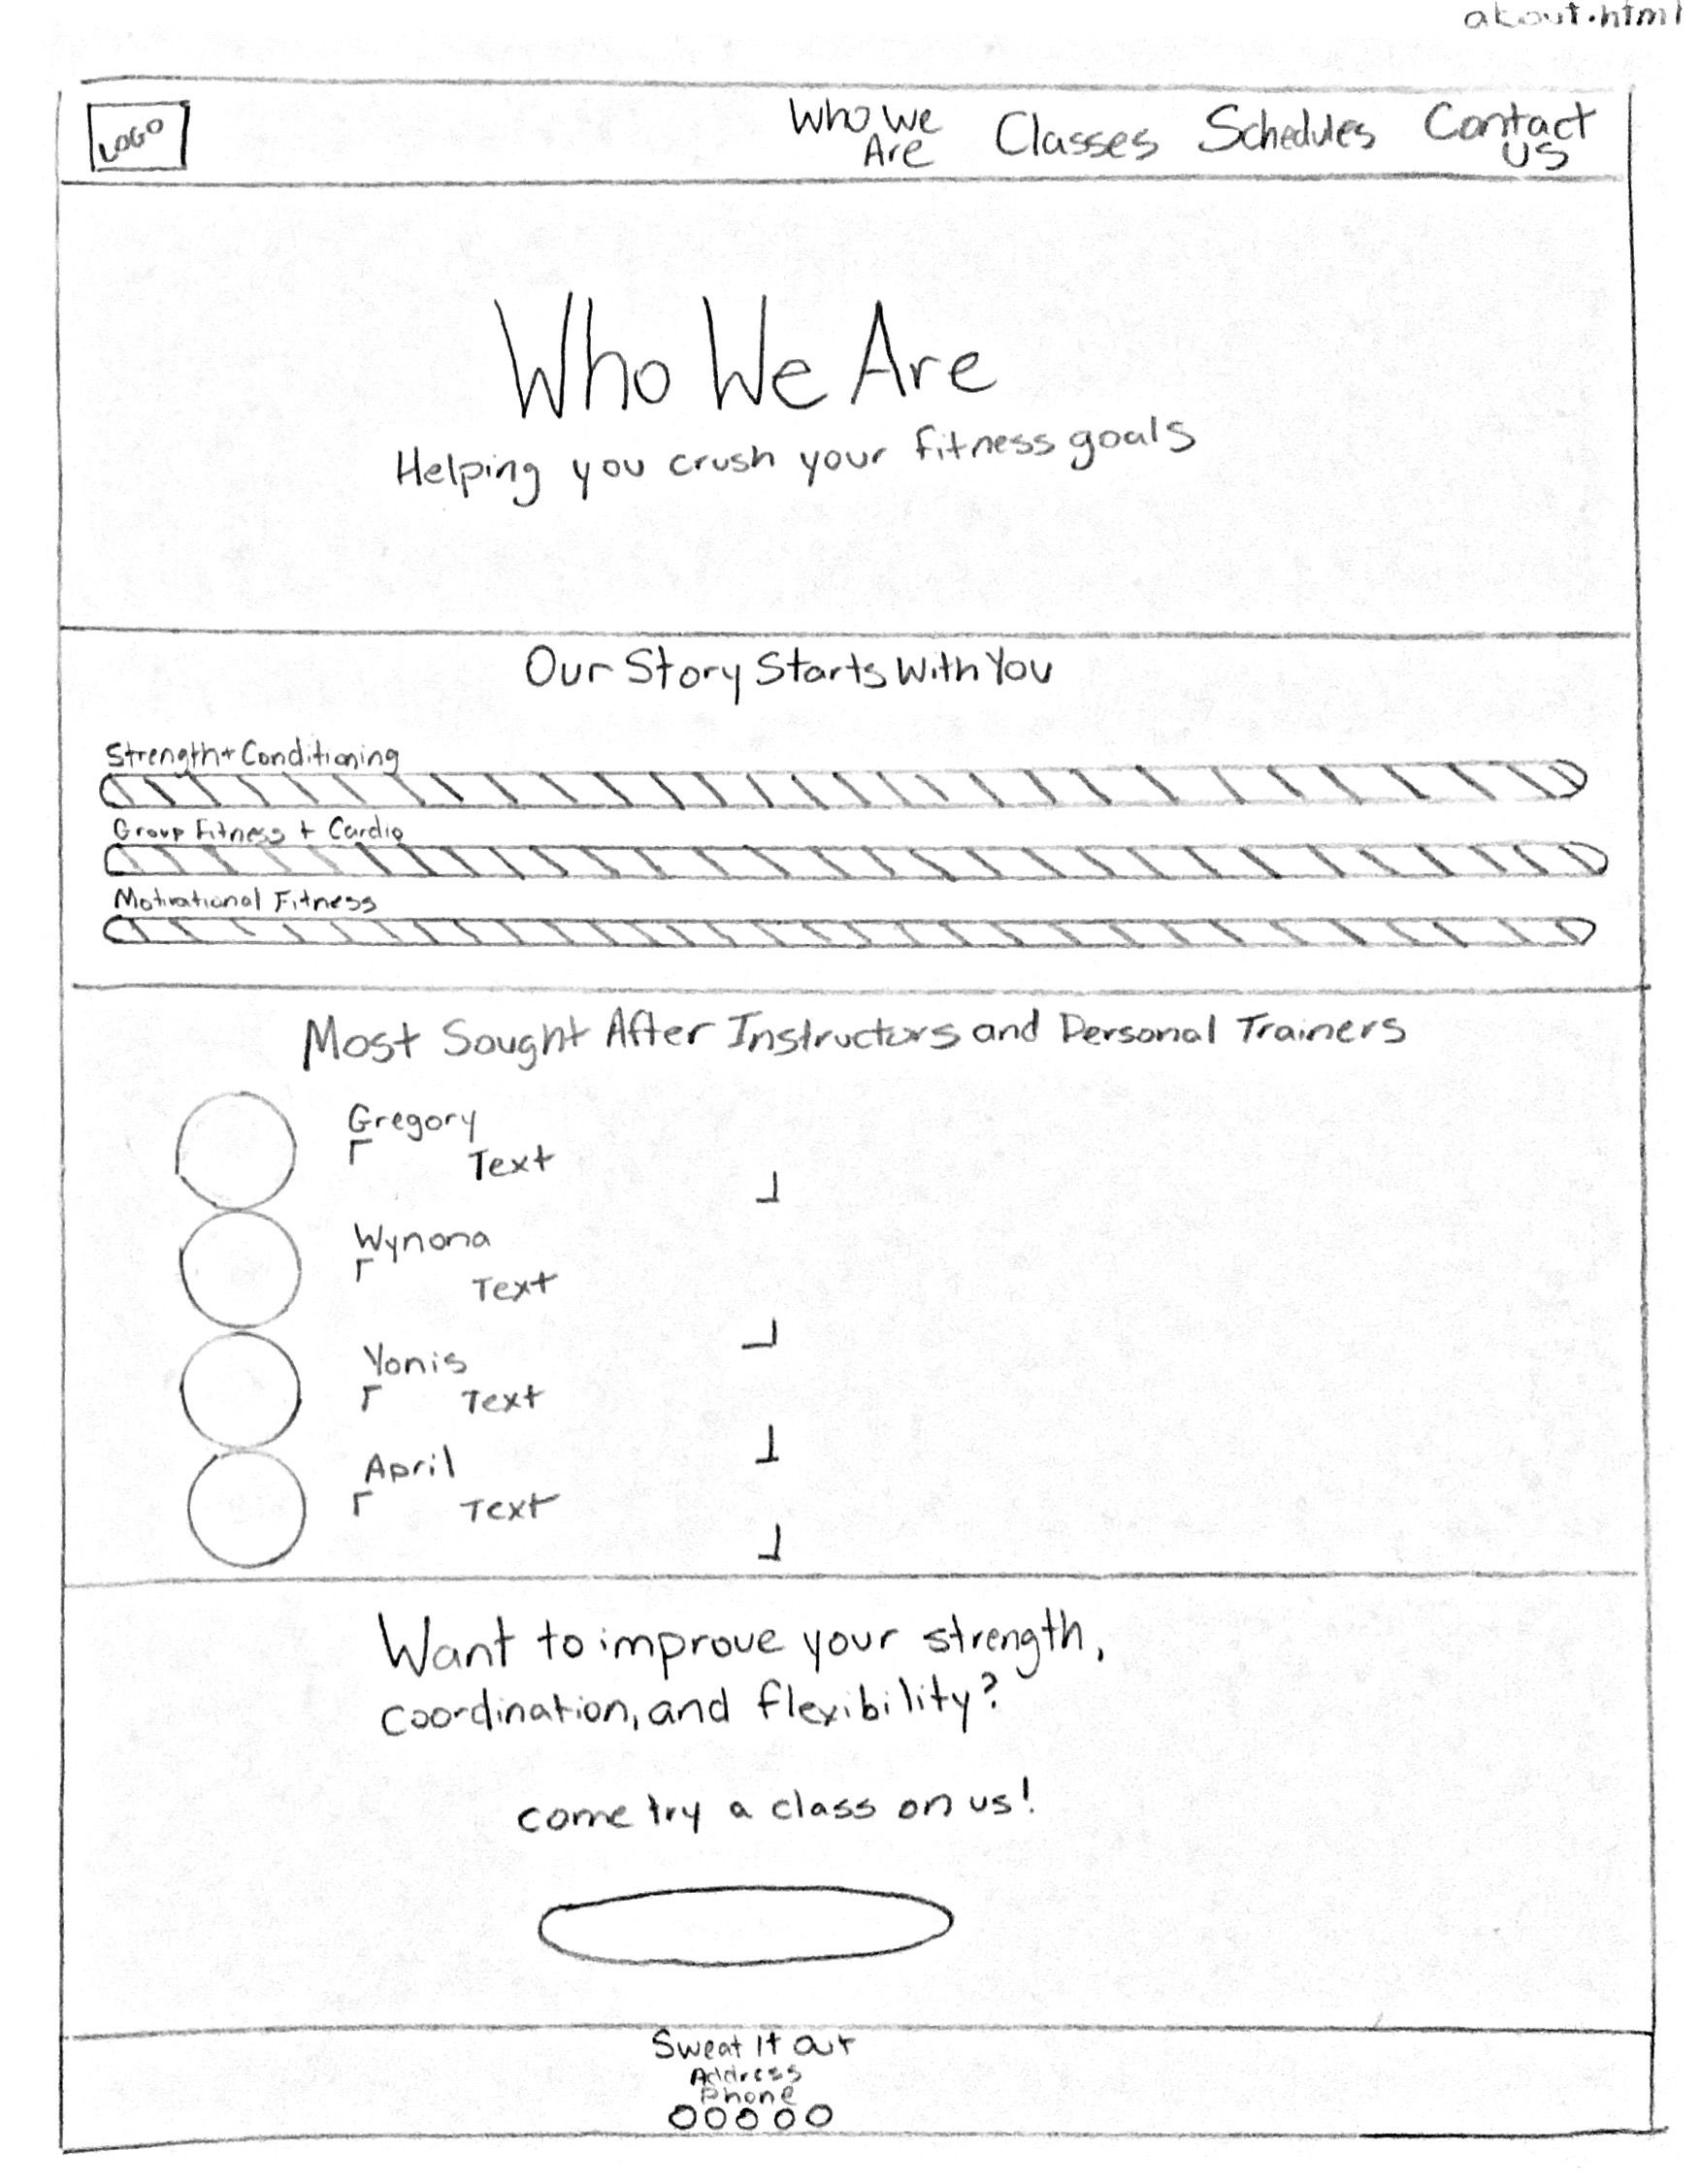 about.html
LOGO
Who We
Are
Classes
Schedules
Contact
Us
Who We Are
Helping you crush your fitness goals
Our Story Starts With You
Strength + Conditioning
Group Fitness + Cardio
Motivational Fitness
Most Sought After Instructors and Personal Trainers
Gregory
Text
Wynona
Text
Yonis
Text
April
Text
Want to improve your strength,
coordination, and flexibility?
come try a class on us!
Sweat It Out
Address
Phone